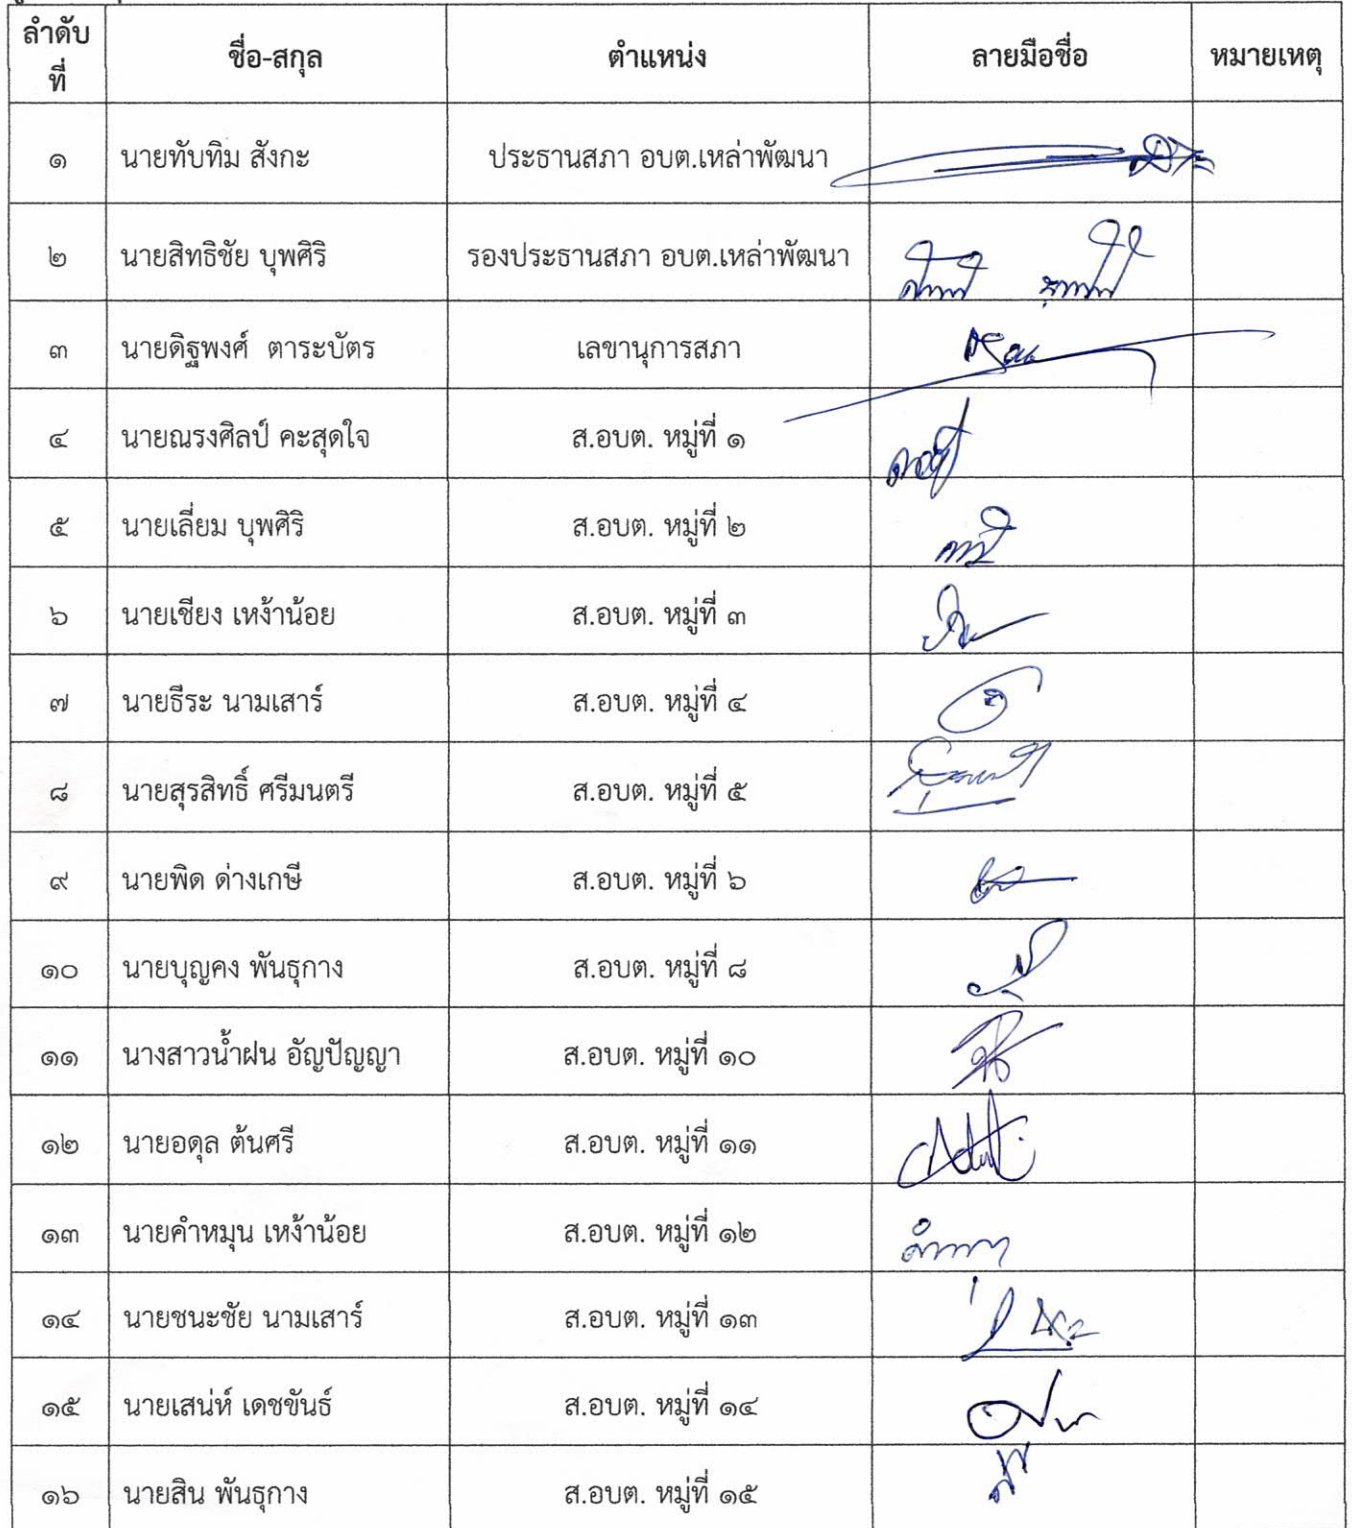 ลำดับ
ที่
ชื่อ-สกุล ตำแหน่ง ลายมือชื่อ หมายเหตุ
๑ นายทับทิม สังกะ ประธานสภา อบต.เหล่าพัฒนา
๒ นายสิทธิชัย บุพศิริ รองประธานสภา อบต.เหล่าพัฒนา
๓ นายดิฐพงศ์ ตาระบัตร เลขานุการสภา
๔ นายณรงศิลป์ คะสุดใจ ส.อบต. หมู่ที่ ๑
๕ นายเลี่ยม บุพศิริ ส.อบต. หมู่ที่ ๒
๖ นายเชียง เหง้าน้อย ส.อบต. หมู่ที่ ๓
๗ นายธีระ นามเสาร์ ส.อบต. หมู่ที่ ๔
๘ นายสุรสิทธิ์ ศรีมนตรี ส.อบต. หมู่ที่ ๕
๙ นายพิด ด่างเกษี ส.อบต. หมู่ที่ ๖
๑๐ นายบุญคง พันธุกาง ส.อบต. หมู่ที่ ๘
๑๑ นางสาวน้ำฝน อัญปัญญา ส.อบต. หมู่ที่ ๑๐
๑๒ นายอดุล ต้นศรี ส.อบต. หมู่ที่ ๑๑
๑๓ นายคำหมุน เหง้าน้อย ส.อบต. หมู่ที่ ๑๒
๑๔ นายชนะชัย นามเสาร์ ส.อบต. หมู่ที่ ๑๓
๑๕ นายเสน่ห์ เดชขันธ์ ส.อบต. หมู่ที่ ๑๔
๑๖ นายสิน พันธุกาง ส.อบต. หมู่ที่ ๑๕